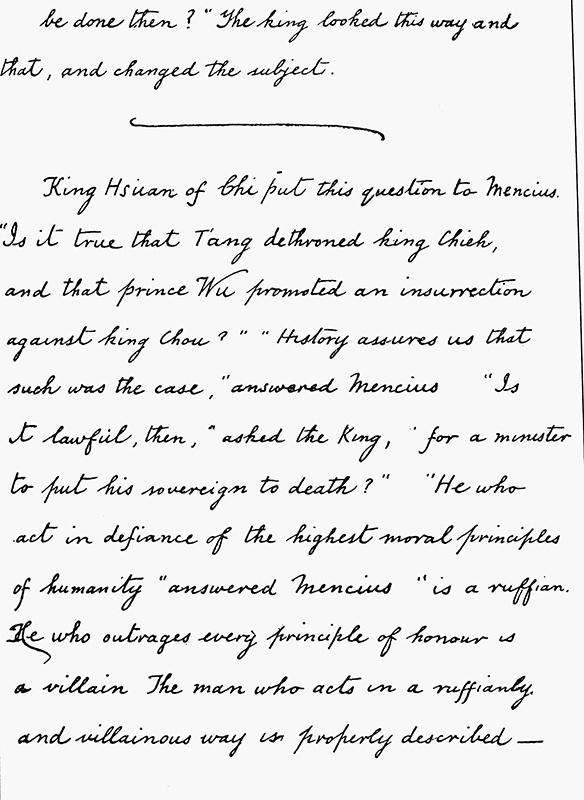 be done then?" The king looked this way and
that, and changed the subject.
King Hsüan of Chi put this question to Mencius.
"Is it true that T'ang dethroned king Chieh,
and that prince Wu promoted an insurrection
against king Chou?" "History assures us that
such was the case," answered Mencius "Is
it lawful, then," asked the King, ' for a minister
to put his sovereign to death?" "He who
act in defiance of the highest moral principles
of humanity" answered Mencius "is a ruffian.
He who outrages every principle of honour is
a villain The man who acts in a ruffianly
and villainous way is properly described —